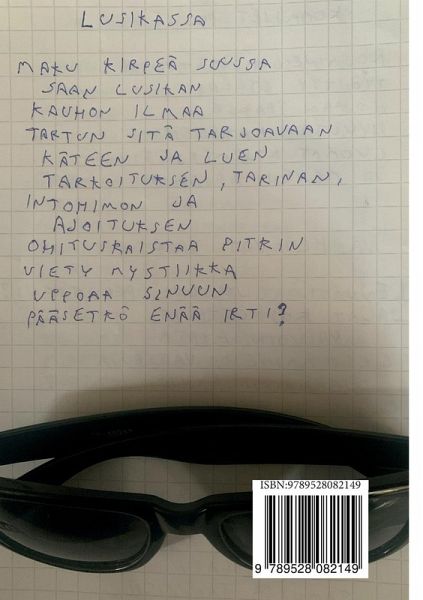 LUSIKASSA
MAKU KIRPEÄ SUUSSA
SAAN LUSIKAN
KAUHON ILMAA
TARTUN SITÄ TARJOAVAAN
KÄTEEN JA LUEN
TARKOITUKSEN, TARINAN,
INTOHIMON JA
AJOITUKSEN
OHITUSKAISTAA PITKIN
VIETY MYSTIIKKA
UPPOAA SINUUN
PÄÄSETKÖ ENÄÄ IRTI?
ISBN:9789528082149
9 789528 082149